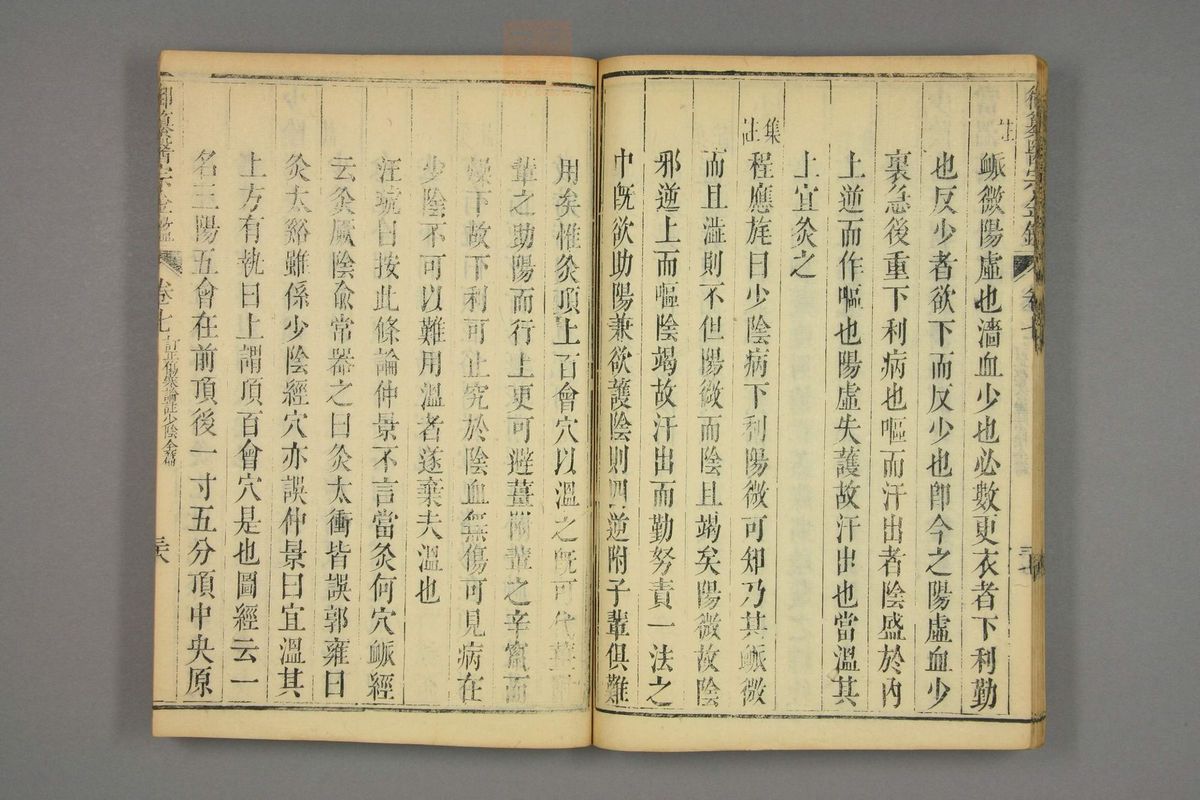 御纂醫宗金鑑
卷七
註
脈微陽虛也濇血少也必數更衣者下利勤
也反少者欲下而反少也卽今之陽虛血少
裏急後重下利病也嘔而汗出者陰盛於內
上逆而作嘔也陽虛失護故汗出也當溫其
上宜灸之
集註
程應旄曰少陰病下利陽微可知乃其脈微
而且濇則不但陽微而陰且竭矣陽微故陰
邪逆上而嘔陰竭故汗出而勤努責一法之
中旣欲助陽兼欲護陰則四逆附子輩俱難
用矣惟灸頂上百會穴以溫之旣可代薑
輩之助陽而行上更可避薑附輩之辛竄而
下故下利可止究於陰血無傷可見病在
少陰不可以難用溫者遂棄夫溫也
汪琥曰按此條論仲景不言當灸何穴脈經
云灸厥陰俞常器之曰灸太衝皆誤郭雍曰
灸太谿雖係少陰經穴亦誤仲景曰宜溫其
上方有執曰上謂頂百會穴是也圖經云一
名三陽五會在前頂後一寸五分頂中央原
御纂醫宗金鑑
卷七
訂正傷寒論註少陰全篇
三六